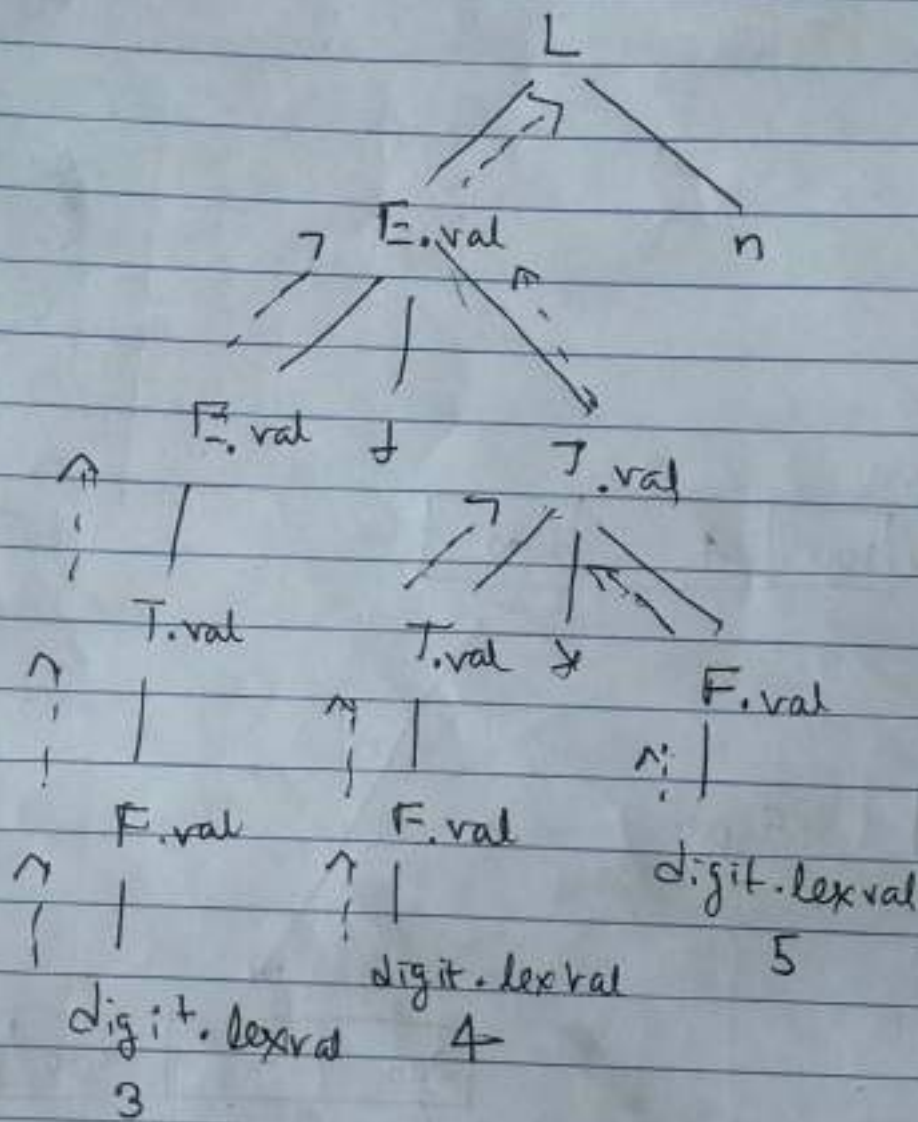 L
E.val n
E.val + T.val
T.val T.val * F.val
F.val F.val digit.lexval
digit.lexval digit.lexval 5
3 4